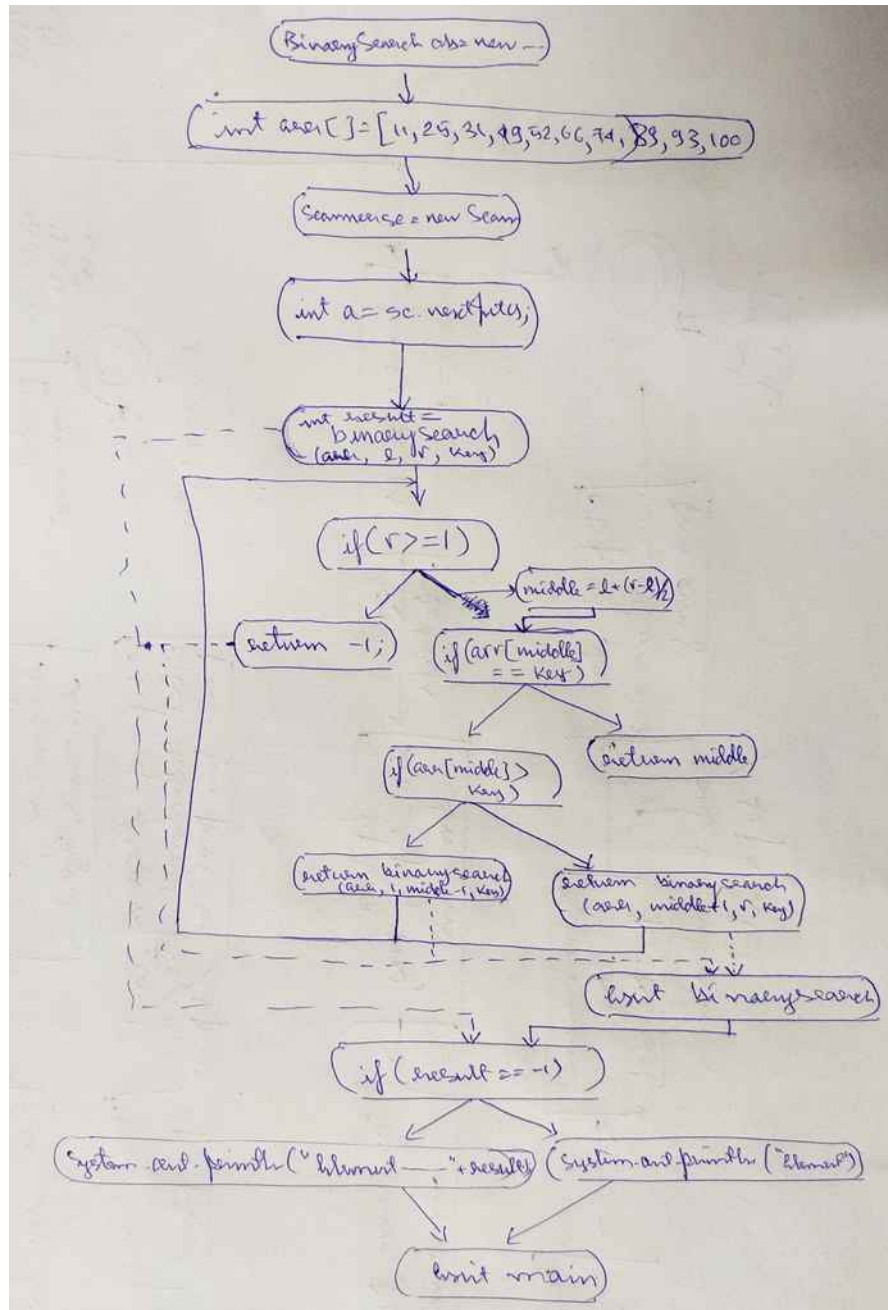 BinarySearch obj= new --
int arr[] = [11,25,31,49,52,66,74,89,93,100
Scanner sc = new Scan
int a = sc.nextInt();
int result =
binarysearch
(arr, l, r, key)
if(r>=1)
middle = l+(r-l)/2
return -1;
if(arr[middle]
== key)
if(arr[middle]>
key)
return middle
return binarysearch
(arr, 1, middle-1, key)
return binarysearch
(arr, middle+1, r, key)
Exit binarysearch
if(result == -1)
System.out.println("Element — "+result)
System.out.println("Element")
Exit main